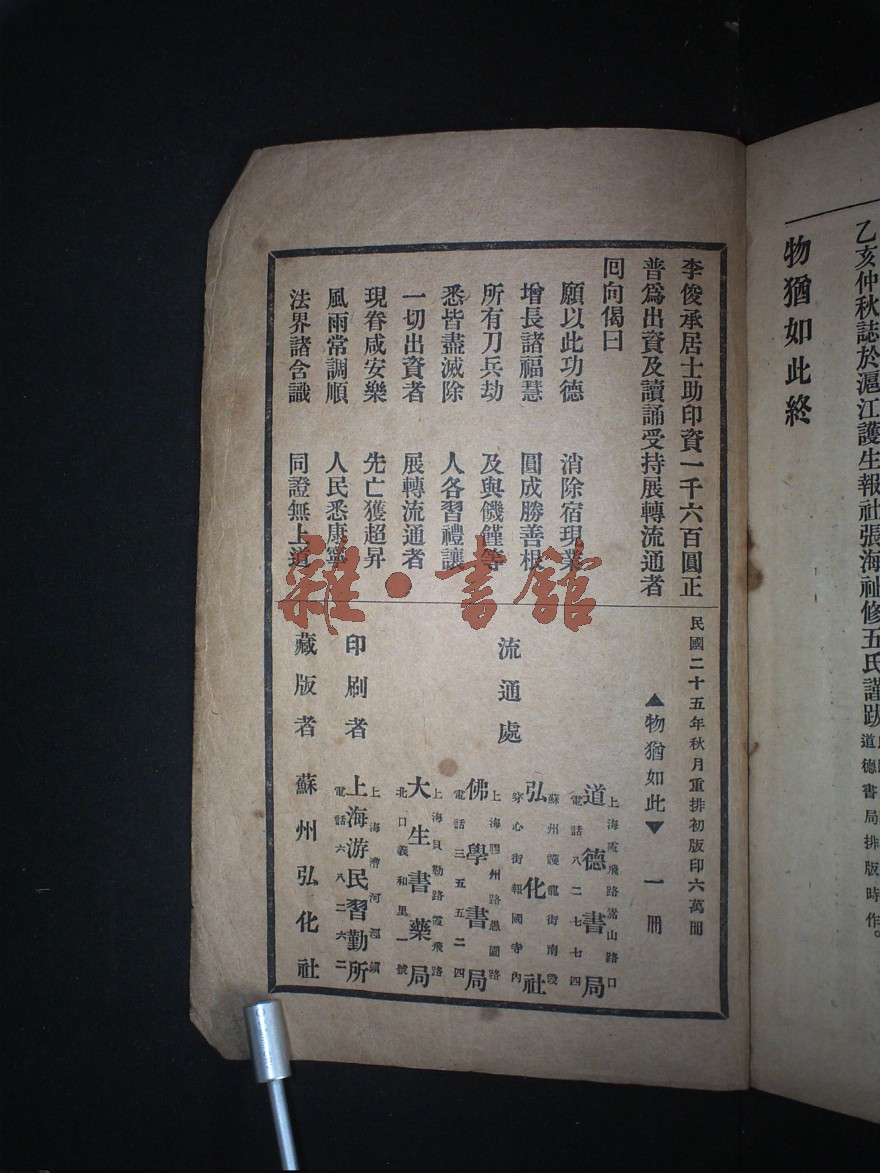 乙亥仲秋誌於滬江護生報社張海社修五氏謹跋
道德書局排版時作。
物猶如此終
李俊承居士助印資一千六百圓正
普爲出資及讀誦受持展轉流通者
囘向偈曰
願以此功德　消除宿現業
增長諸福慧　圓成勝善根
所有刀兵劫　及與饑饉等
悉皆盡滅除　人各習禮讓
一切出資者　展轉流通者
現眷咸安樂　先亡獲超昇
風雨常調順　人民悉康寧
法界諸含識　同證無上道
民國二十五年秋月重排初版印六萬冊
▲物猶如此▼　一冊
流通處
上海霞飛路嵩山路口
道德書局
電話八二七七四
蘇州護龍街南段
弘化社
穿心街報國寺內
上海膠州路愚園路
佛學書局
電話三五五二四
上海貝勒路霞飛路
大生書藥局
北口義和里一號
印刷者
上海漕河涇鎮
上海游民習勤所
電話六八二六二
藏版者　蘇州弘化社
雜·書館